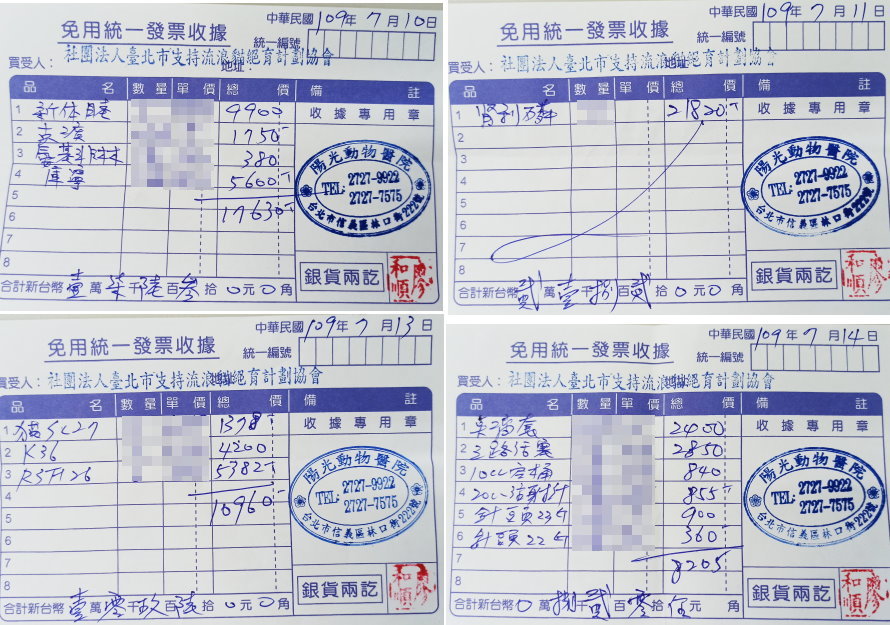 中華民國109年7月10日
免用統一發票收據
統一編號
買受人：社團法人臺北市支持流浪貓絕育計劃協會
地址：
品名 數量 單價 總價 備註
1 9900
收據專用章
2 1750
3 380
4 庫寧 5600
5
6 17630
7
8
陽光動物醫院
TEL: 2727-9922
2727-7575
台北市信義區林口街222號
銀貨兩訖
合計新台幣壹萬柒千陸百參拾0元0角
中華民國109年7月11日
免用統一發票收據
統一編號
買受人：社團法人臺北市支持流浪貓絕育計劃協會
地址：
品名 數量 單價 總價 備註
1 21820
收據專用章
2
3
4
5
6
7
8
陽光動物醫院
TEL: 2727-9922
2727-7575
台北市信義區林口街222號
銀貨兩訖
合計新台幣貳萬壹千捌百貳拾0元0角
中華民國109年7月13日
免用統一發票收據
統一編號
買受人：社團法人臺北市支持流浪貓絕育計劃協會
地址：
品名 數量 單價 總價 備註
1 貓SC27 1378
收據專用章
2 K36 4200
3 5382
4
5 10960
6
7
8
陽光動物醫院
TEL: 2727-9922
2727-7575
台北市信義區林口街222號
銀貨兩訖
合計新台幣壹萬零千玖百陸拾0元0角
中華民國109年7月14日
免用統一發票收據
統一編號
買受人：社團法人臺北市支持流浪貓絕育計劃協會
地址：
品名 數量 單價 總價 備註
1 2400
收據專用章
2 三路活塞 2850
3 10cc空桶 840
4 20cc注射針 855
5 針頭23G 900
6 針頭22G 360
7 8205
8
陽光動物醫院
TEL: 2727-9922
2727-7575
台北市信義區林口街222號
銀貨兩訖
合計新台幣0萬捌千貳百零拾伍元角